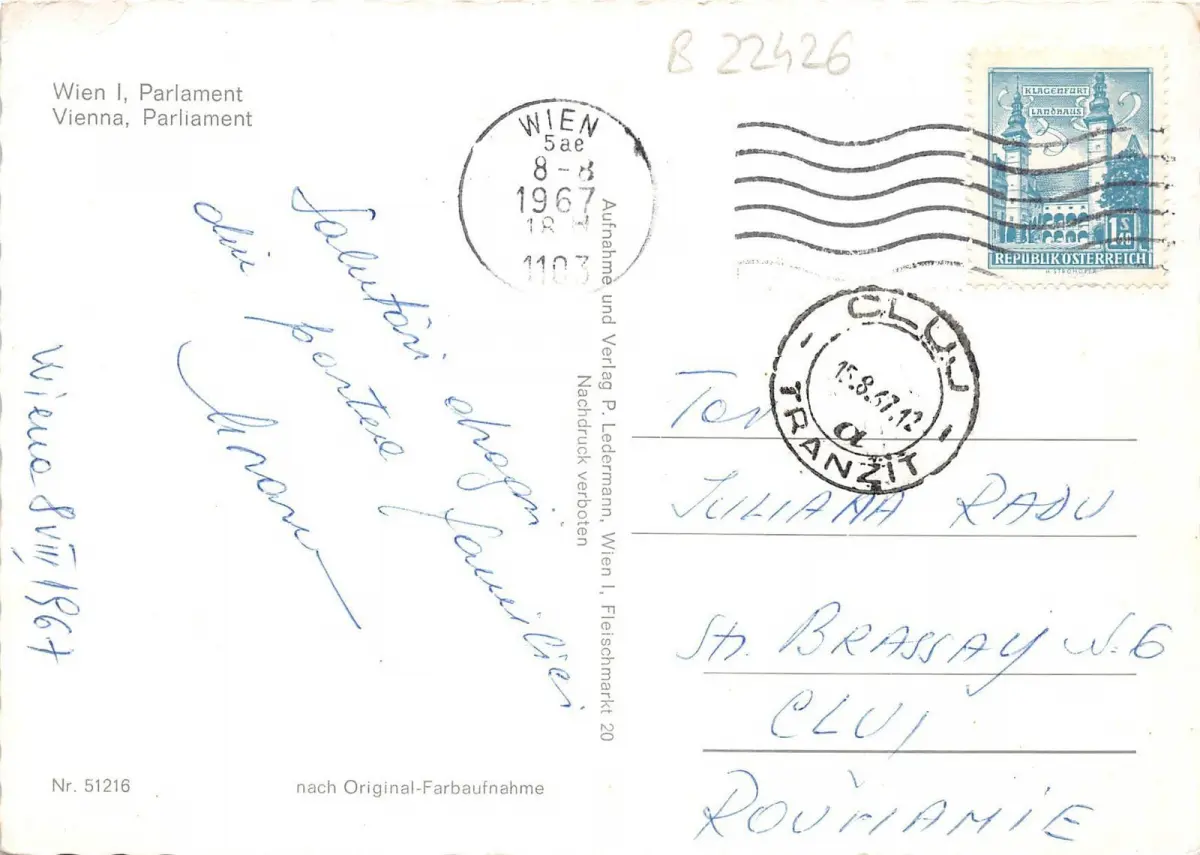 B 22426
Wien I, Parlament
Vienna, Parliament
WIEN
5ae
8-8
1967
18
1103
KLAGENFURT
LANDHAUS
1 S 40
REPUBLIK ÖSTERREICH
CLUJ
15.8.67.12
a
TRANZIT
Salutări dragi familiei
din partea
Wiena 8 VIII 1967
Aufnahme und Verlag P. Ledermann, Wien I, Fleischmarkt 20
Nachdruck verboten
JULIANA RADU
Str. BRASSAY N. 6
CLUJ
ROUMANIE
Nr. 51216
nach Original-Farbaufnahme